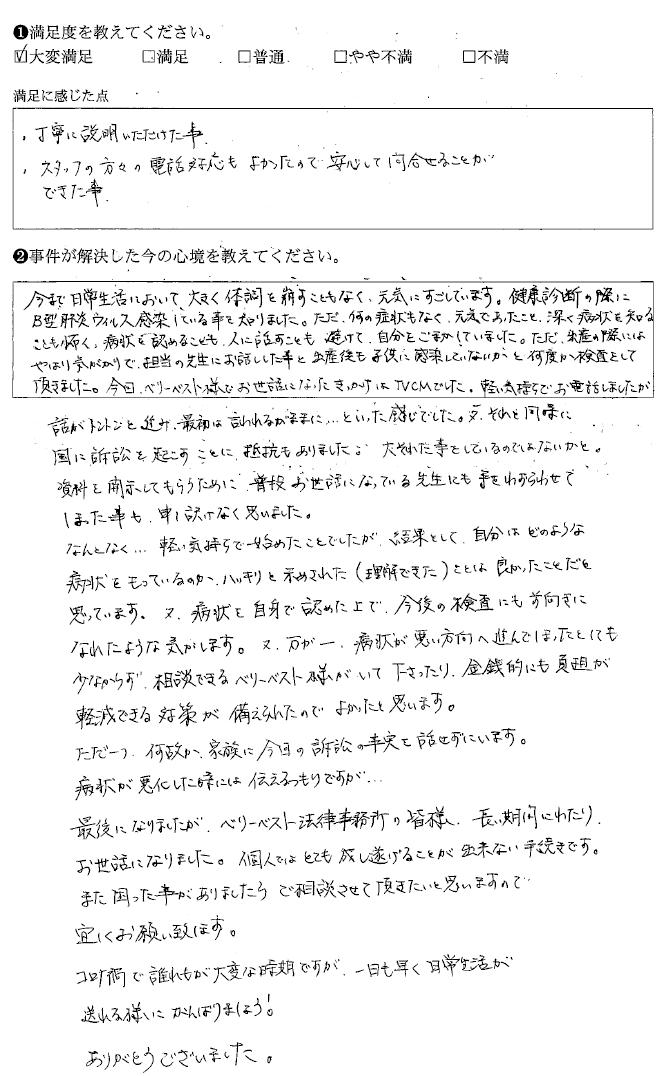 ❶満足度を教えてください。
☑大変満足 □満足 □普通 □やや不満 □不満
満足に感じた点
・丁寧に説明いただけた事
・スタッフの方々の電話対応もよかったので安心して問合せることが
できた事
❷事件が解決した今の心境を教えてください。
今まで日常生活において、大きく体調を崩すこともなく、元気にすごしています。健康診断の際に
B型肝炎ウィルス感染している事を知りました。ただ、何の症状もなく、元気であったこと、深く病状を知る
ことも怖く、病状を認めることも、人に話すことも避けて、自分をごまかしていました。ただ、出産の際には
やはり気がかりで、担当の先生にお話しした事と出産後も子供に感染していないかと何度か検査をして
頂きました。今回、ベリーベスト様でお世話になったきっかけはTVCMでした。軽い気持ちでお電話しましたが
話がトントンと進み、最初は言われるがままに…といった感じでした。又、それと同様に
国に訴訟を起こすことに、抵抗もありました。大それた事をしているのではないかと。
資料を開示してもらうために、普段お世話になっている先生にも手をわずらわせて
しまった事も、申し訳なく思いました。
なんとなく…軽い気持ちで始めたことでしたが、結果として、自分はどのような
病状をもっているのか、ハッキリと示めされた（理解できた）ことは良かったことだと
思っています。又、病状を自身で認めた上で、今後の検査にも前向きに
なれたような気がします。又、万が一、病状が悪い方向へ進んでしまったとしても
少なからず、相談できるベリーベスト様がいて下さったり、金銭的にも負担が
軽減できる対策が備えられたのでよかったと思います。
ただ一つ、何故か、家族に今回の訴訟の事実を話せずにいます。
病状が悪化した時には伝えるつもりですが…
最後になりましたが、ベリーベスト法律事務所の皆様、長い期間にわたり、
お世話になりました。個人ではとても成し遂げることが出来ない手続きです。
また困った事がありましたらご相談させて頂きたいと思いますので
宜しくお願い致します。
コロナ禍で誰もが大変な時期ですが、一日も早く日常生活が
送れる様にがんばりましょう！
ありがとうございました。